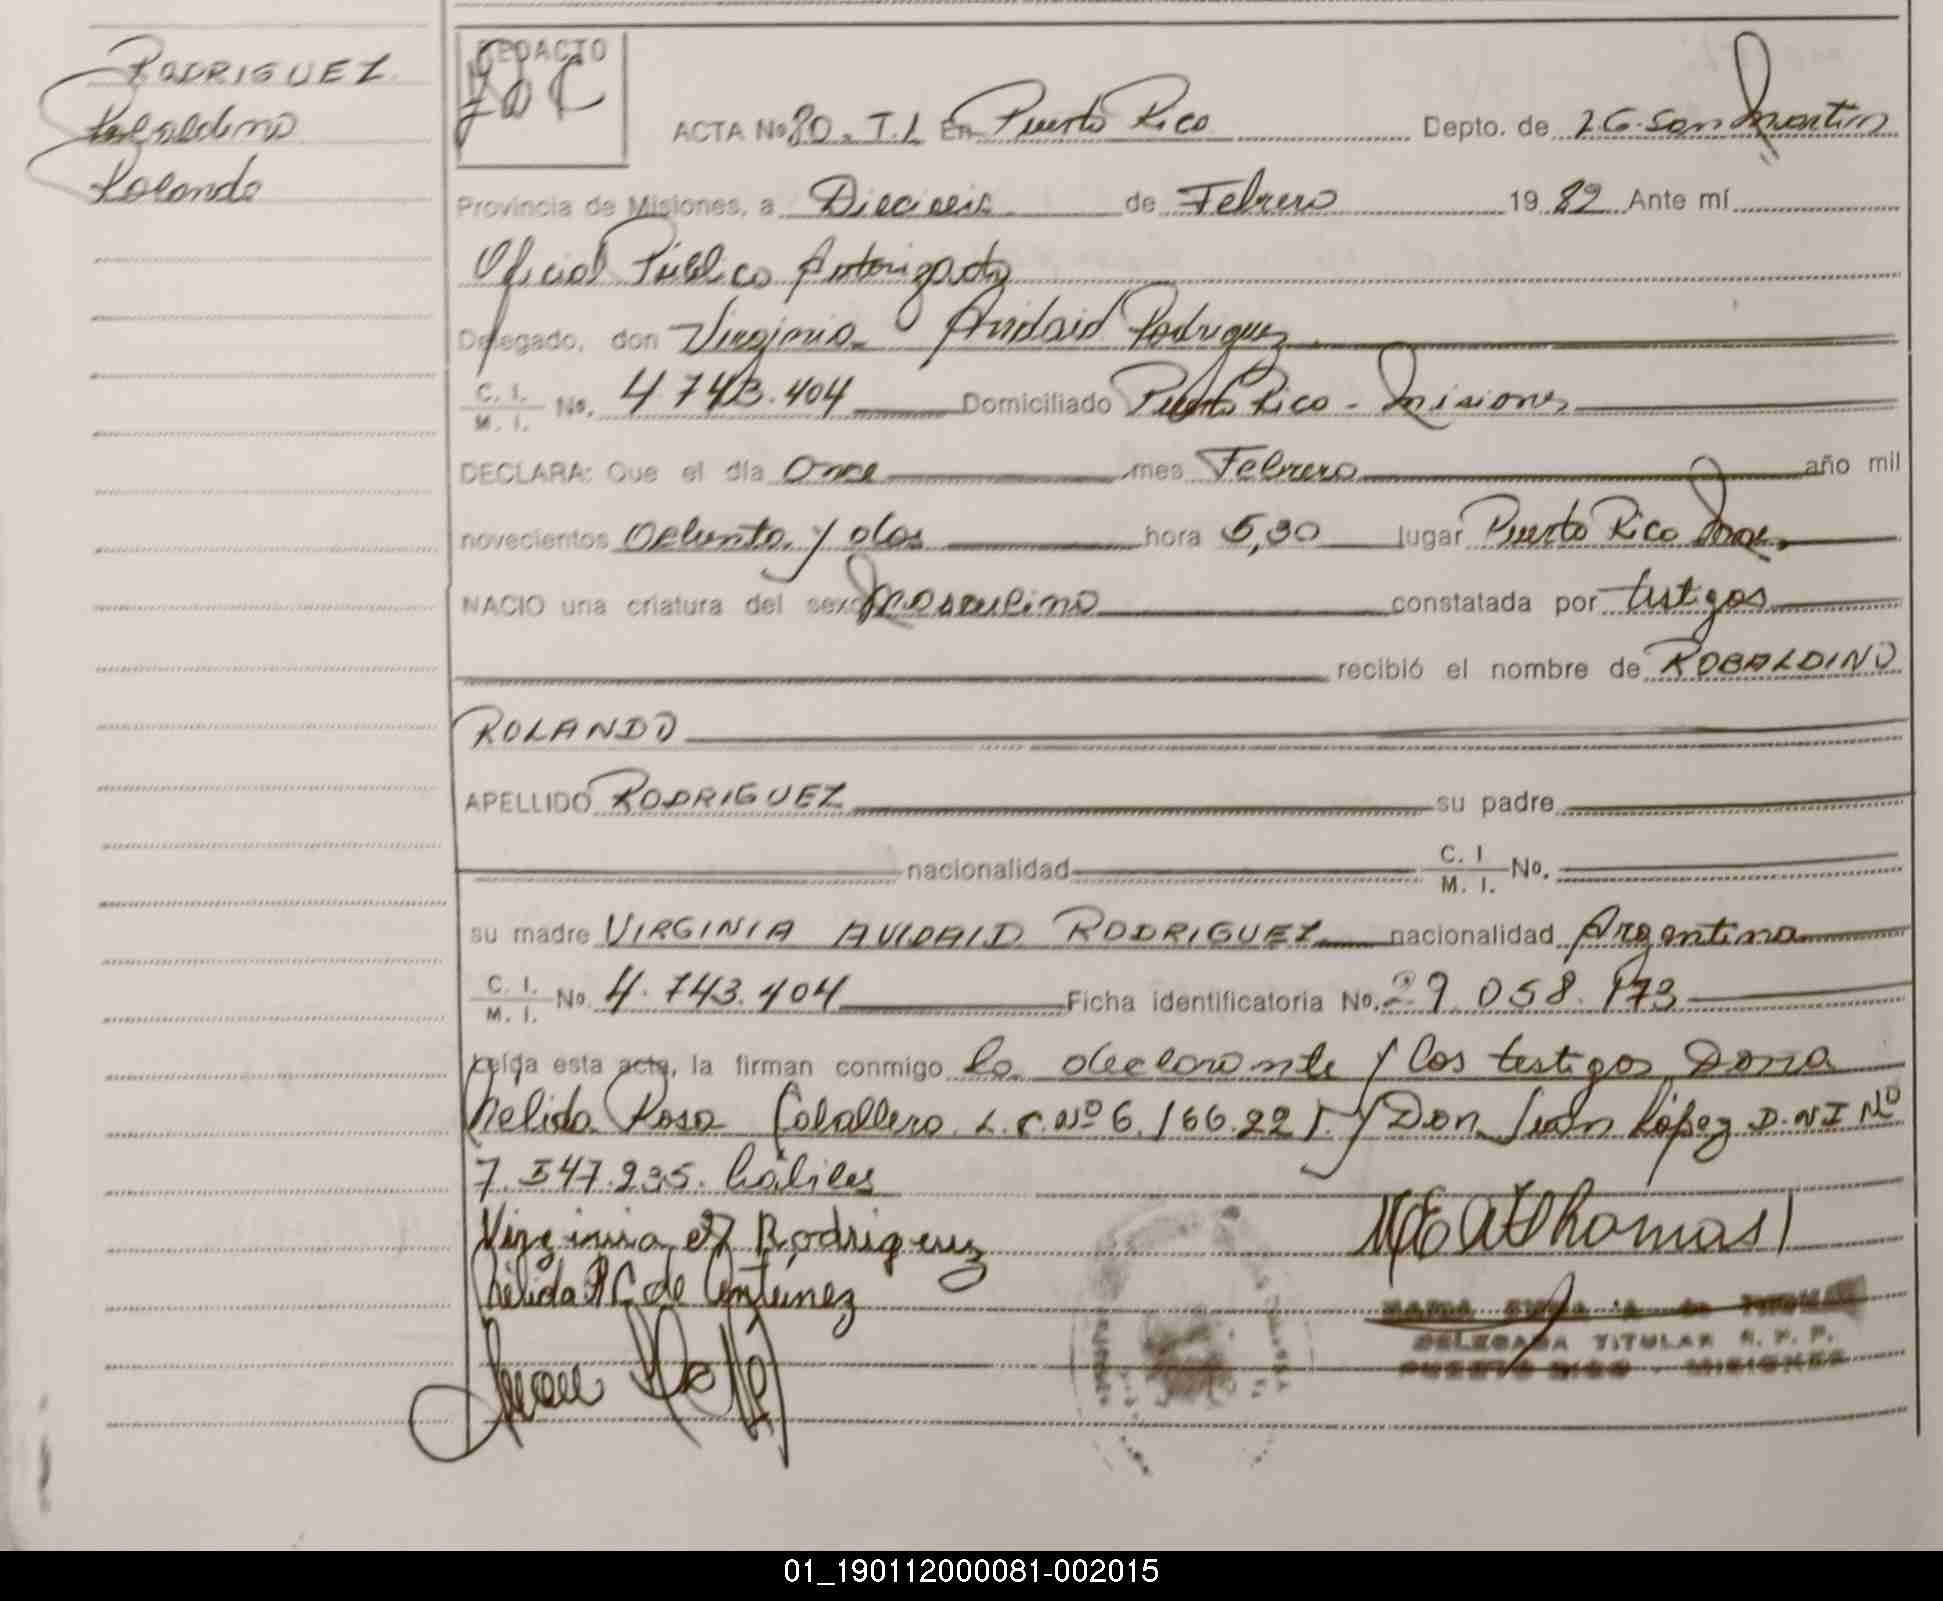 RODRIGUEZ
Robaldino
Rolando
REDACTO
ACTA No 80 - T.I. En Puerto Rico Depto. de L.G. San Martin
Provincia de Misiones, a Dieciseis de Febrero 19 82 Ante mí
Oficial Público Autorizado
Delegado, don Virginia Avidaid Rodriguez
C. I. / M. I. No. 4.743.404 Domiciliado Puerto Rico - Misiones
DECLARA: Que el día Once mes Febrero año mil
novecientos Ochenta y dos hora 5,30 lugar Puerto Rico Mnes.
NACIO una criatura del sexo Masculino constatada por testigos
recibió el nombre de ROBALDINO
ROLANDO
APELLIDO RODRIGUEZ su padre
nacionalidad C. I. / M. I. No.
su madre VIRGINIA AVIDAID RODRIGUEZ nacionalidad Argentina
C. I. / M. I. No. 4.743.404 Ficha identificatoria No. 29.058.173
Leída esta acta, la firman conmigo la declarante y los testigos Doña
Nelida Rosa Caballero L.C. Nº 6.166.221. y Don Juan López D.N.I Nº
7.547.235. hábiles
Virginia Rodriguez
Nélida R C de Antunez
M E A Thomas
DELEGADA TITULAR R. P. P.
PUERTO RICO - MISIONES
01_190112000081-002015